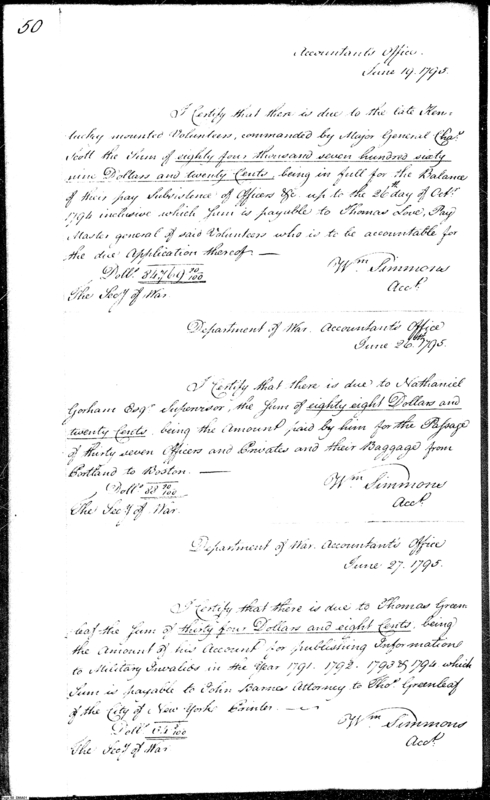 50
Accountants Office.
June 19. 1795.
I Certify that there is due to the late Ken-
tucky mounted Volunteers, commanded by Major General Chas.
Scott the Sum of eighty four thousand seven hundred sixty
nine Dollars and twenty Cents, being in full for the Balance
of their pay Subsistence of Officers &c up to the 26th day of Octr.
1794 inclusive which Sum is payable to Thomas Love, Pay
Master general of said Volunteers who is to be accountable for
the due Application thereof —
Dolls. 84769 20/100
Wm Simmons
The Secy of War.
Acct.
Department of War. Accountant's Office
June 26th 1795.
I Certify that there is due to Nathaniel
Gorham Esqr. Supervisor, the Sum of eighty eight Dollars and
twenty Cents, being the Amount paid by him for the Passage
of thirty seven Officers and Privates and their Baggage from
Portland to Boston. —
Dolls. 88 20/100
Wm Simmons
The Secy of War.
Acct.
Department of War. Accountant's Office
June 27. 1795.
I Certify that there is due to Thomas Green
leaf the Sum of thirty four Dollars and eight Cents, being
the Amount of his Account for publishing Information
to Military Invalids in the Year 1791. 1792. 1793 & 1794 which
Sum is payable to John Barnes Attorney to Thos. Greenleaf
of the City of New York Printer. —
Dolls. 34 8/100
Wm Simmons
The Secy of War
Acct.